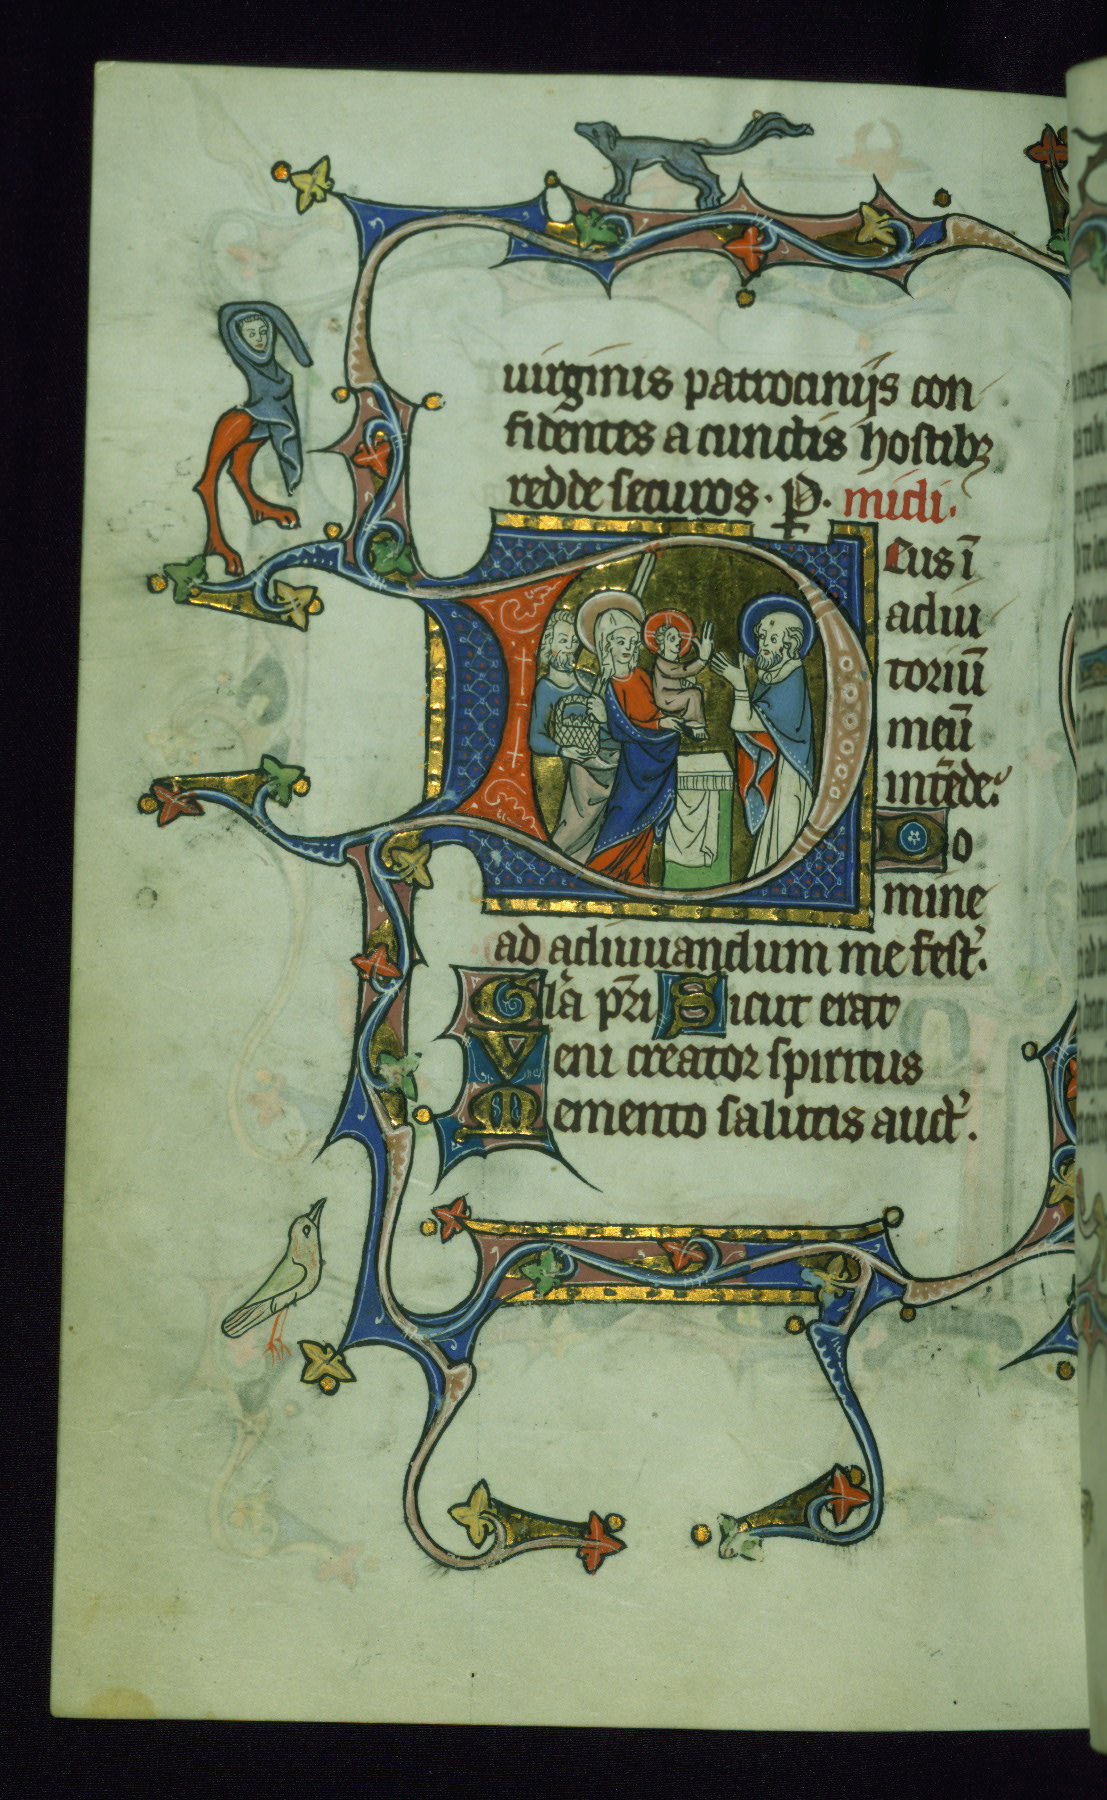 uirginis patrocinijs con
fidentes a cunctis hostibꝫ
redde securos. P. midi.
Deus ī
adiu
toriū
meū
intēde.
Do
mine
ad adiuuandum me fest'.
Gl'a pr̄i Sicut erat
Veni creator spiritus
Memento salutis auct'.